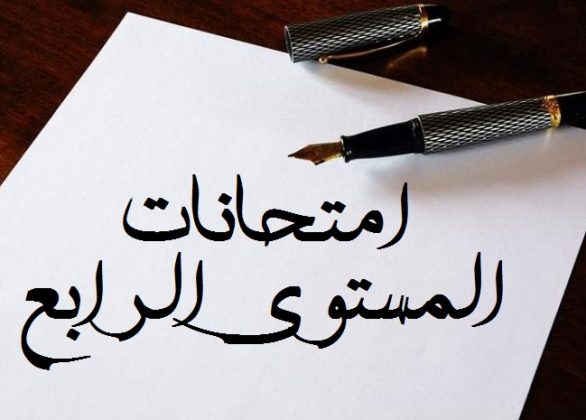 امتحانات
المستوى الرابع